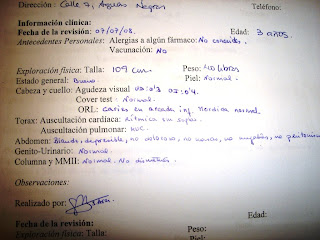 Dirección : Calle 7, Aguas Negras Teléfono:
Información clínica:
Fecha de la revisión: 07/07/08. Edad: 3 años.
Antecedentes Personales: Alergias a algún fármaco: No conocidas.
Vacunación: No
Exploración física: Talla: 109 cm. Peso: 40 libras
Estado general: Bueno Piel: Normal -
Cabeza y cuello: Agudeza visual
Cover test: Normal.
ORL: Caries en arcada inf. Mordida normal.
Torax: Auscultación cardiaca: Rítmica sin soplos.
Auscultación pulmonar: MVC.
Abdomen: Blando, depresible, no doloroso, no masas, no megalias, no peritonismo
Genito-Urinario: Normal.
Columna y MMII: Normal. No dismetrías.
Observaciones:
Realizado por:
Fecha de la revisión: Edad:
Exploración física: Talla: Peso:
Estado general: Piel: